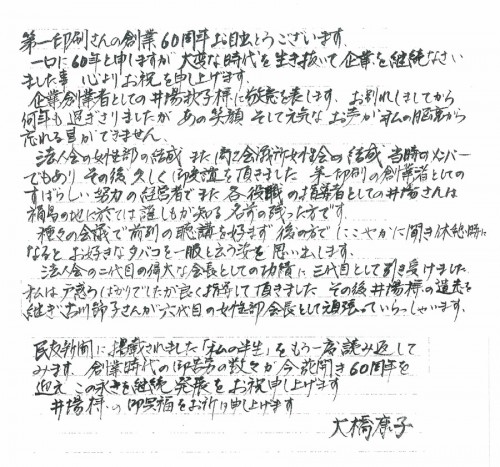 第一印刷さんの創業60周年お目出とうございます。
一口に60年と申しますが大変な時代を生き抜いて企業を継続なさい
ました事 心よりお祝を申し上げます。
企業創業者としての井場秋子様に敬意を表します。お別れしてから
何年も過ぎさりましたが あの笑顔 そして元気なお声が私の脳裏から
忘れる事ができません。
法人会の女性部の結成 また商工会議所女性会の結成 当時のメンバー
でもあり その後 久しく御交誼を頂きました 第一印刷の創業者としての
すばらしい努力の経営者でまた各役職の指導者としての井場さんは
福島の地に於ては誰しもが知る名前の残った方です。
種々の会議で前列の聴講を好まず 後の方でにこやかに聞き休憩時に
なると お好きなタバコを一服と云う姿を思い出します。
法人会の二代目の偉大な会長としての功績に 三代目として引き受けました
私は戸惑うばかりでしたが良く指導して頂きました その後 井場様の道を
継ぎ古川節子さんが六代目の女性部会長として頑張っていらっしゃいます。
民友新聞に掲載されました「私の半生」をもう一度読み返して
みます。創業時代の御苦労の数々が今花開き60周年を
迎え この永きを継続 発展をお祝申し上げます
井場様の御冥福をお祈り申し上げます
大橋康子